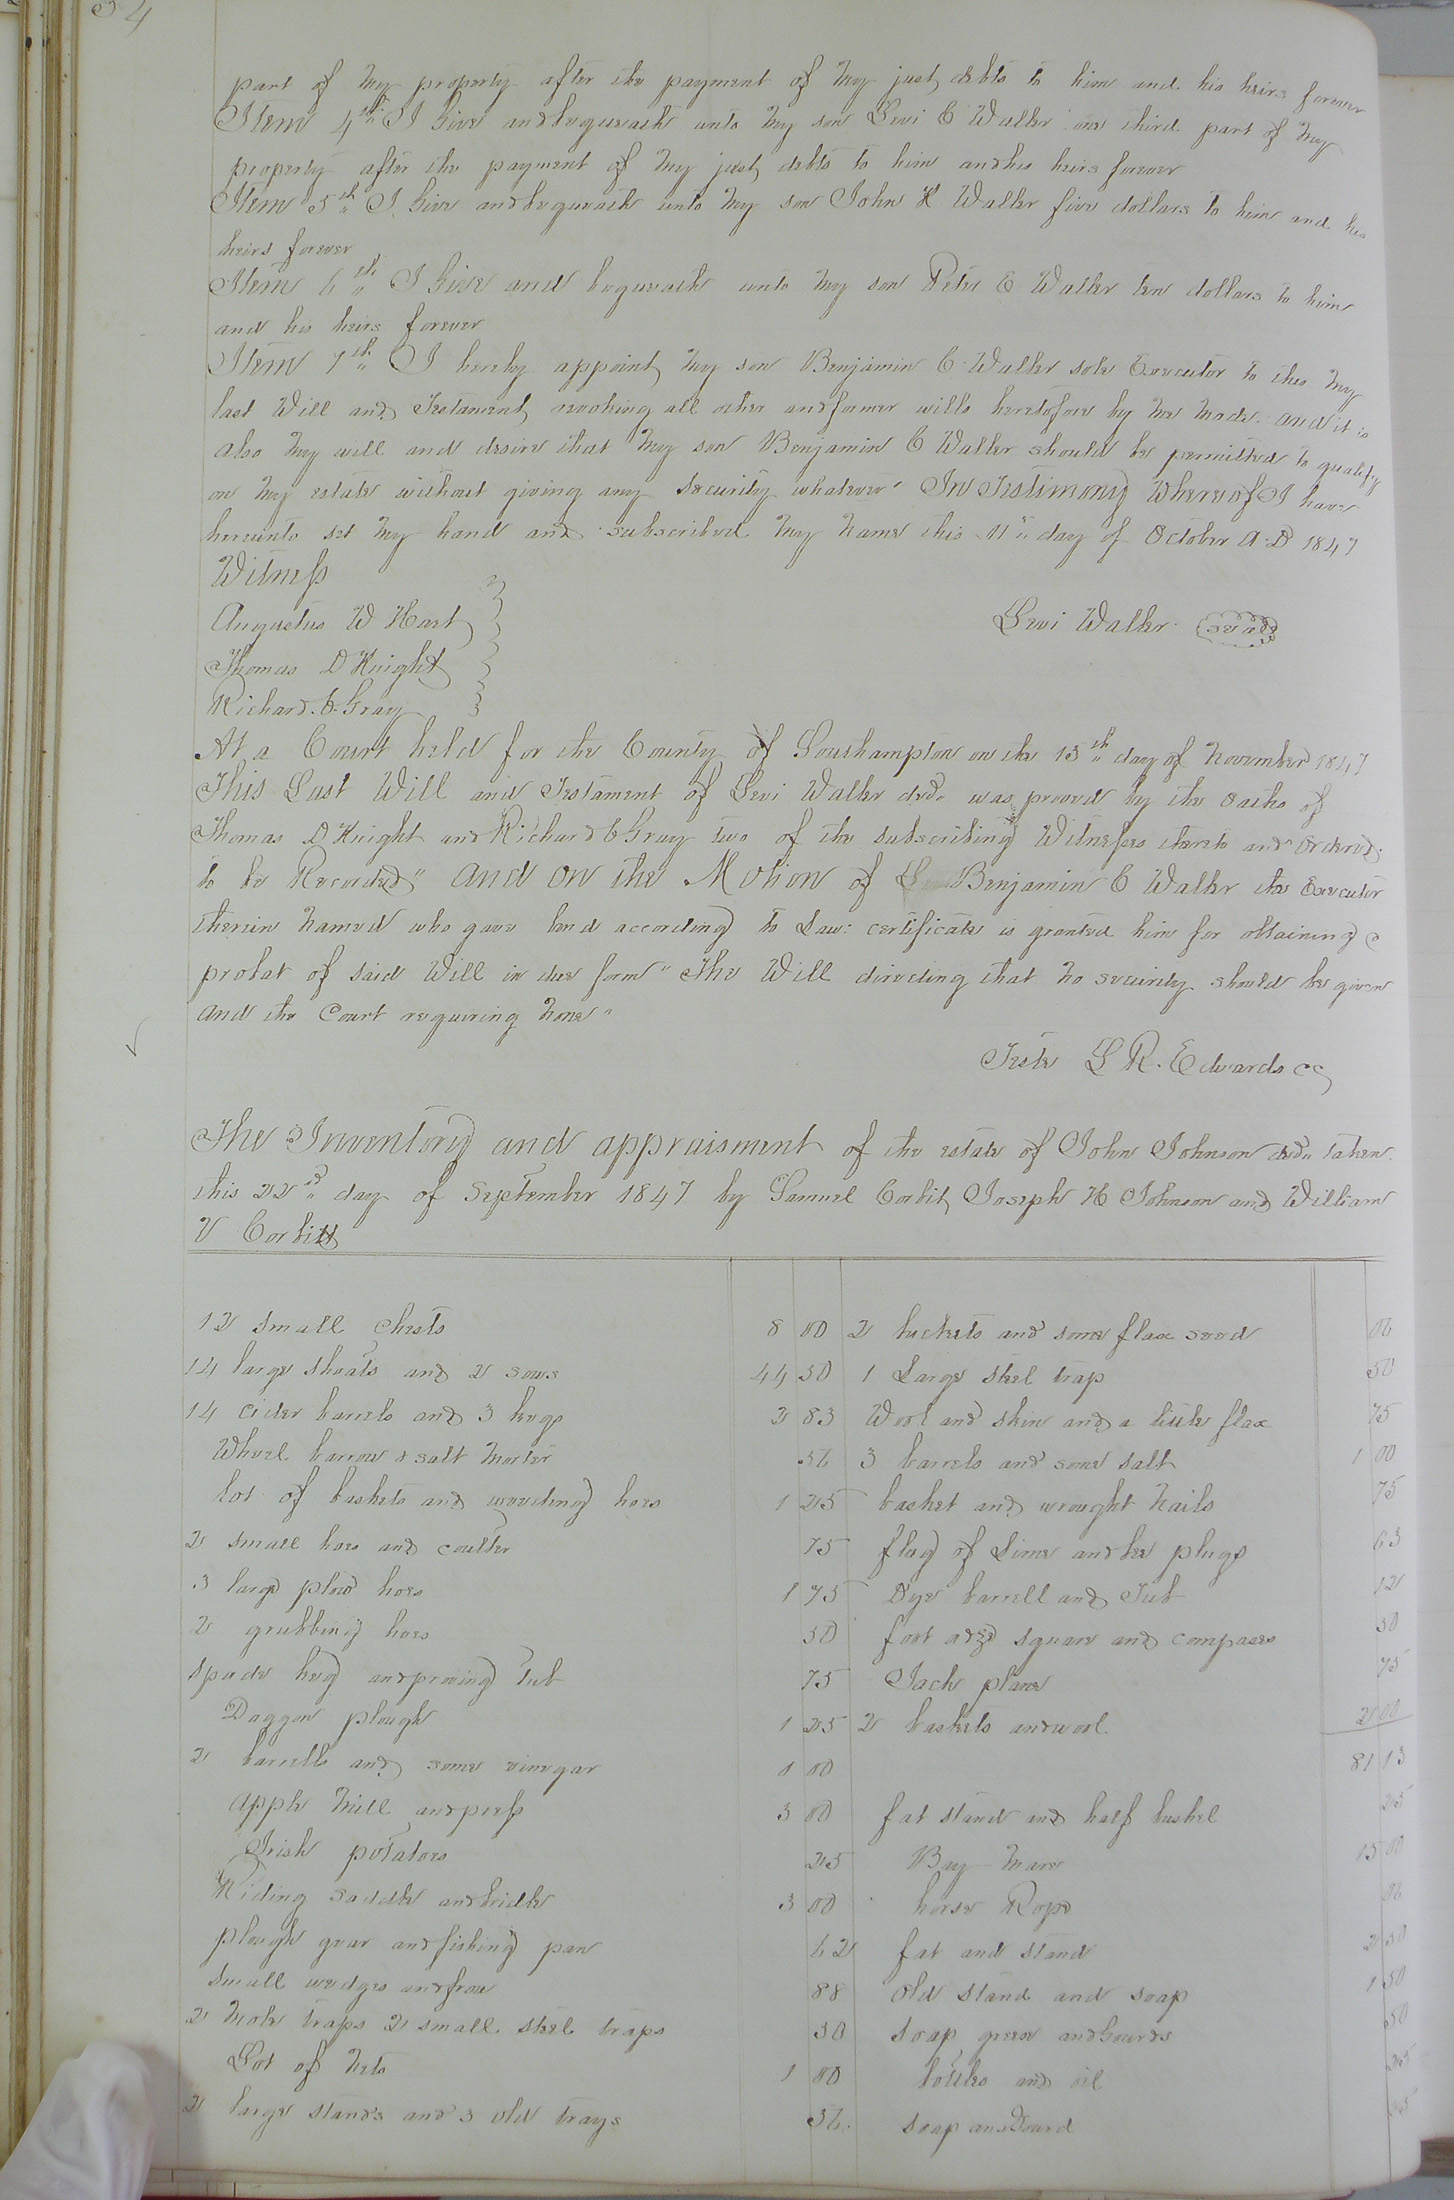 34
part of my property after the payment of my just debts to him and his heirs forever
Item 4th I Give and bequeath unto my son Levi C Waller one third part of my
property after the payment of my just debts to him and his heirs forever
Item 5th I Give and bequeath unto my son John H Waller five dollars to him and his
heirs forever
Item 6th I Give and bequeath unto my son Peter E Waller ten dollars to him
and his heirs forever
Item 7th I hereby appoint my son Benjamin C Waller sole Executor to this my
last Will and Testament, revoking all other and former wills heretofore by me made. and it is
also my will and desire that my son Benjamin C Waller should be permitted to qualify
on my estate without giving any security whatever" In Testimony Whereof I have
hereunto set my hand and subscribed my name this 11th day of October A.D 1847
Witness
Augustus W Hart
Levi Waller seal
Thomas D Knight
Richard C Gray
At a Court held for the County of Southampton on the 15th day of November 1847
This Last Will and Testament of Levi Waller decd. was prooved by the oaths of
Thomas D Knight and Richard C Gray two of the subscribing Witnesses thereto and Ordered
to be Recorded" And on the Motion of Benjamin C Waller the Executor
therein named who gave bond according to Law: certificate is granted him for obtaining a
probat of said Will in due form" The Will directing that no security should be given
and the Court requiring none"
Teste L R. Edwards CC
The Inventory and appraisment of the estate of John Johnson decd. taken
this 22nd day of September 1847 by Samuel Corbit, Joseph H Johnson and William
V Corbitt
12 small chests 8 00 2 buckets and some flax seed 06
14 large shoats and 2 sows 44 50 1 Large steel trap 50
14 cider barrels and 3 kegs 2 83 Wool and skin and a little flax 75
Wheel barrow & salt morter 56 3 barrels and some salt 1 00
Lot of baskets and weeding hoes 1 25 basket and wrought nails 75
2 small hoes and coulter 75 of Lime and plugs 63
3 large plow hoes 1 75 Dye barrell and Tub 12
2 grubbing hoes 50 foot adze square and compases 50
Spade keg and Tub 75 Jack plane 75
Daggon plough 1 25 2 baskets and wool 2 00
2 barrells and some vinegar 1 00 81 13
apple mill and press 3 00 fat stand and half bushel 25
Irish potatoes 25 Bay mare 15 00
Riding saddle and bridle 3 00 horse Rope 06
plough gear and fishing pan 62 fat and stand 2 50
small wedges and froe 88 old stand and soap 1 50
2 mole traps 2 small steel traps 50 soap grease and Gourds 50
Lot of nets 1 00 bottles and oil 25
2 large stands and 3 old trays 56 soap and Gourd 25